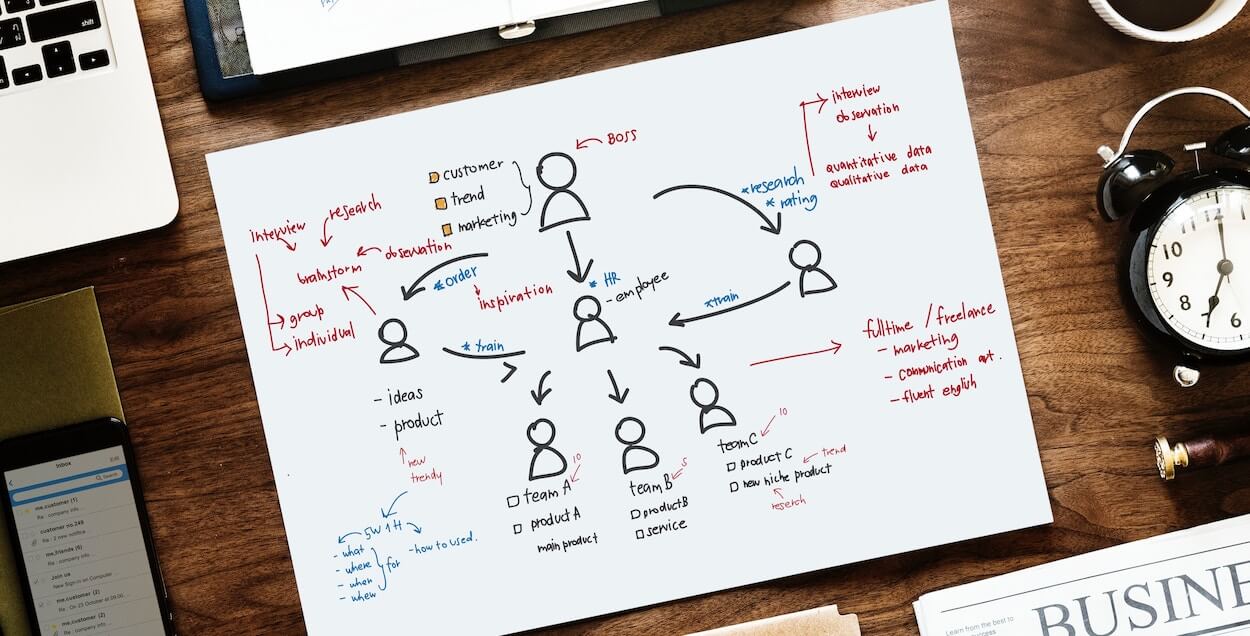 shift
BOSS
customer
trend
marketing
interview
observation
quantitative data
qualitative data
*research
* rating
research
interview
observation
brainstorm
group
individual
*order
inspiration
* HR
- employee
*train
* train
- ideas
- product
new
trendy
5W1H
- what
- where
- when
- whew
for
- how to used.
10
team A
product A
main product
5
team B
product B
service
10
team C
product C
trend
new niche product
reserch
fulltime / freelance
- marketing
- communication art.
- fluent english
12
10
9
8
7
6
Inbox
Edit
Search
me,customer (1)
Re : company info ...
customer no.249
Re : 2 new notifica ...
me,friends (5)
Re : company info ...
Join us
New Sign-in on Computer ...
me,customer (2)
Re : On 23 October at 09.00, ...
me,customer (2)
Re : company info ...
Learn from the best to
success
BUSINE